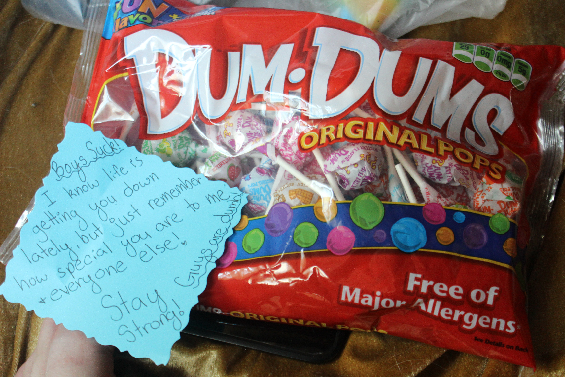 FUN
Flavors
DUM·DUMS
ORIGINAL POPS
Boys Suck!
I know life is
getting you down
lately, but just remember
how special you are to me
+ everyone else!
Stay
Strong!
Guys are dumb!
Free of
Major Allergens
See Details on Back
ORIGINAL POPS